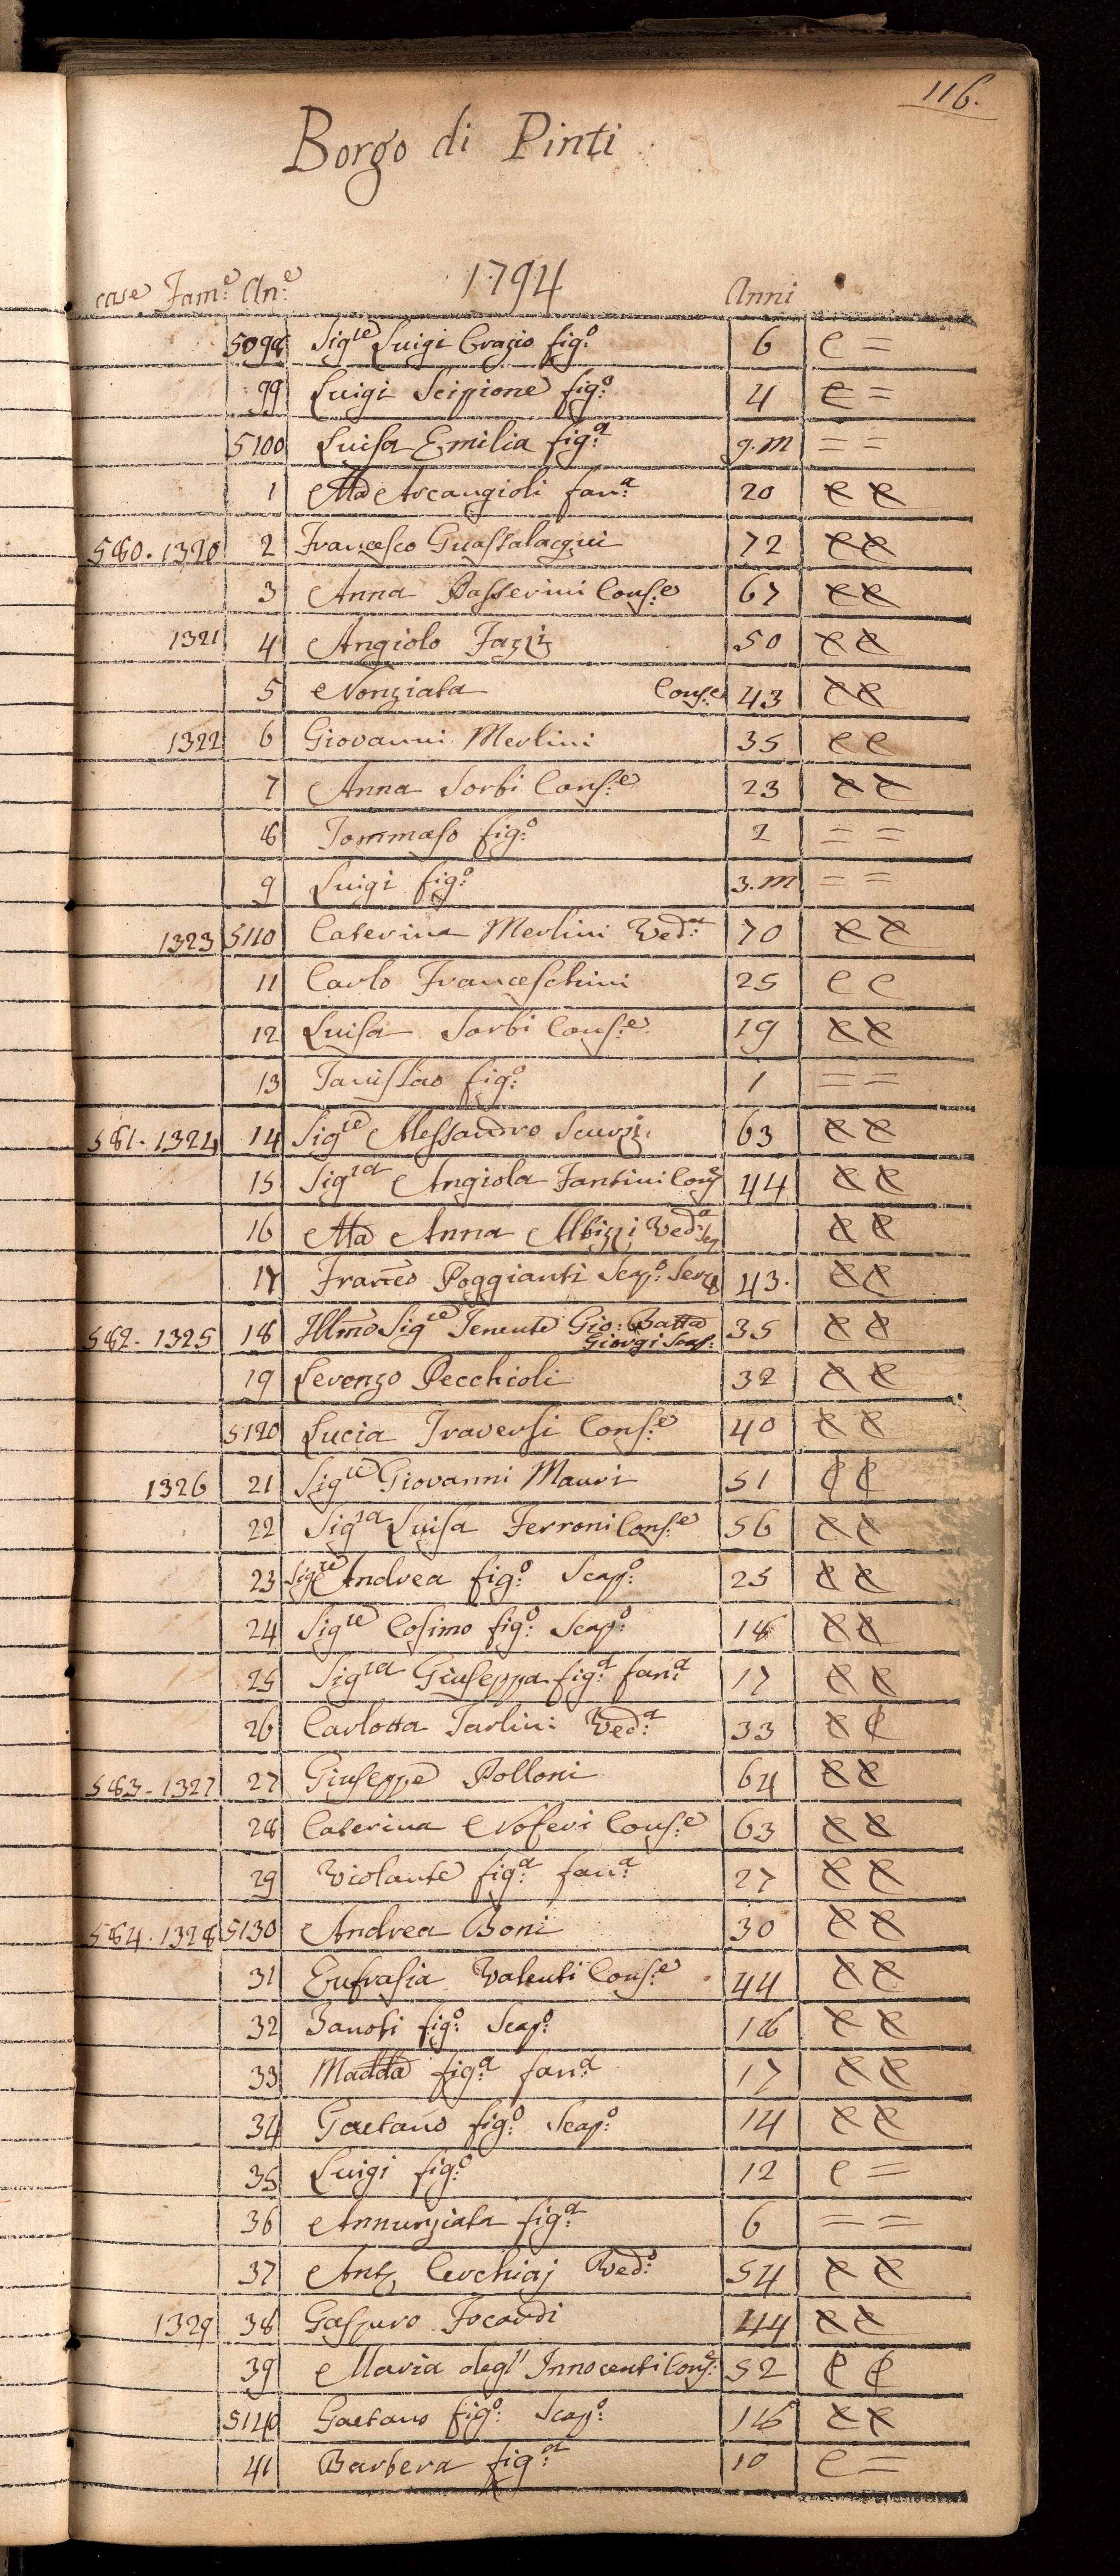 116.
Borgo di Pinti
1794
case Fam:e An:e Anni
5098 Sig.re Luigi Orazio fig:o 6 C =
99 Luigi Scipione fig:o 4 C =
5100 Luisa Emilia fig:a 9.m = =
1 Ma Arcangioli fan:a 20 C C
580. 1320 2 Francesco Guastalacqui 72 C C
3 Anna Passerini Cons:e 67 C C
1321 4 Angiolo Fazzi 50 C C
5 Nonziata Cons:e 43 C C
1322 6 Giovanni Merlini 35 C C
7 Anna Sorbi Cons:e 23 C C
8 Tommaso fig:o 2 = =
9 Luigi fig:o 3.m = =
1323 5110 Caterina Merlini Ved:a 70 C C
11 Carlo Franceschini 25 C C
12 Luisa Sorbi Cons:e 19 C C
13 Tanislao fig:o 1 = =
581. 1324 14 Sig.re Alessandro 63 C C
15 Sig.ra Angiola Fantini Cons 44 C C
16 Ma Anna Albizzi Ved:a C C
17 Franco Poggianti Scap:o 43. C C
582. 1325 18 Illmo Sig.re Tenente Gio: Batta 35 C C
Giorgi Scap:
19 Lorenzo Pecchioli 32 C C
5120 Lucia Traversi Cons:e 40 C C
1326 21 Sig.re Giovanni Mauri 51 C C
22 Sig.ra Luisa Ferroni Cons:e 56 C C
23 Sig.re Andrea fig:o Scap:o 25 C C
24 Sig.re Cosimo fig:o Scap:o 18 C C
25 Sig.ra Giuseppa fig:a fan:a 17 C C
26 Carlotta Tarlini Ved:a 33 C C
583. 1327 27 Giuseppe Polloni 64 C C
28 Caterina Noferi Cons:e 63 C C
29 Violante fig:a fan:a 27 C C
584. 1328 5130 Andrea Boni 30 C C
31 Eufrasia Valenti Cons:e 44 C C
32 Zanobi fig:o Scap:o 18 C C
33 Madda fig:a fan:a 17 C C
34 Gaetano fig:o Scap:o 14 C C
35 Luigi fig:o 12 C =
36 Annunziata fig:a 6 = =
37 Ant. Cerchiaj Ved:o 54 C C
1329 38 Gasparo Focardi 44 C C
39 Maria degl' Innocenti Cons: 52 C C
5140 Gaetano fig:o Scap:o 18 C C
41 Barbera fig:a 10 C =